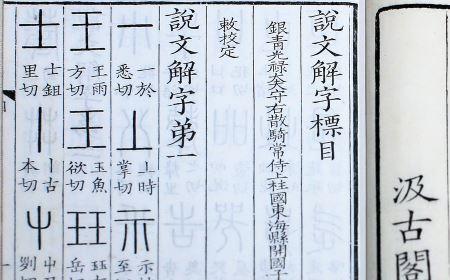 汲古閣
說文解字標目
銀青光祿大夫守右散騎常侍上柱國東海縣開國
敕校定
說文解字弟一
一 一於悉切 丄 丄時掌切 示 示 至
王 王雨方切 玉 玉魚欲切 玨 玨 岳切
士 士鉏里切 丨 丨古本切 屮 屮